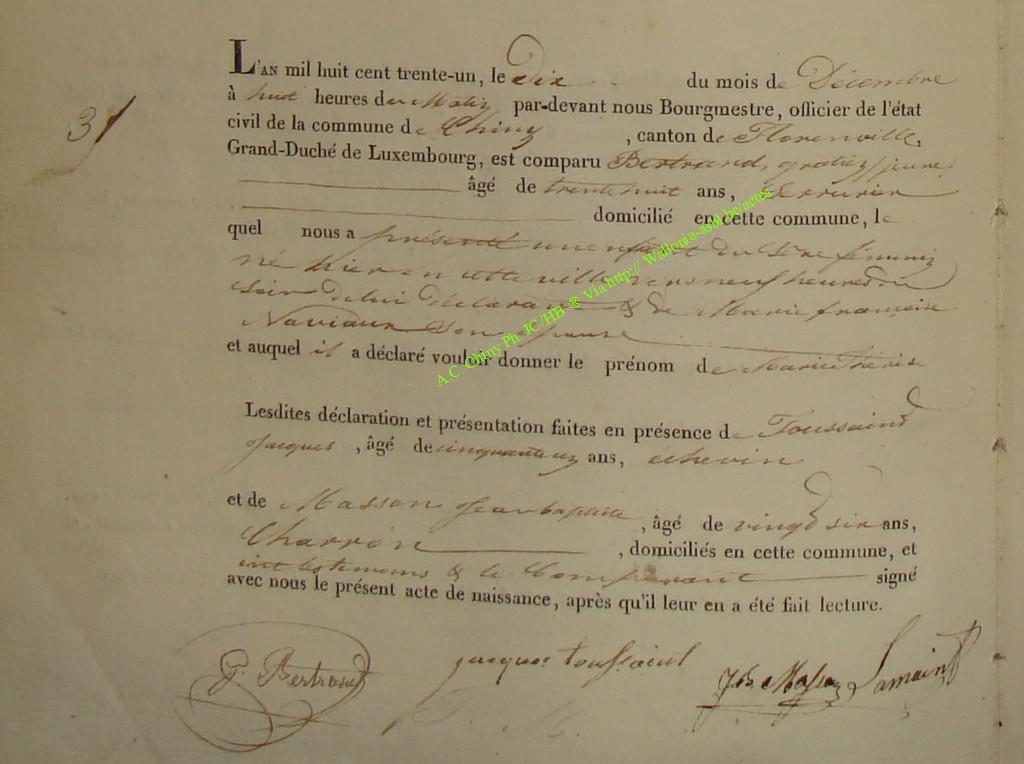 31
L'AN mil huit cent trente-un, le Dix du mois de Décembre
à huit heures du Matin par-devant nous Bourgmestre, officier de l'état
civil de la commune de Chiny, canton de Florenville,
Grand-Duché de Luxembourg, est comparu Bertrand, gratien jeune
âgé de trente huit ans, Serrurier
domicilié en cette commune, le
quel nous a présenté un enfant du sexe féminin
né hier en cette ville vers neuf heures du
soir de lui déclarant & de Marie françoise
Naviaux son épouse
et auquel il a déclaré vouloir donner le prénom de Marie Therese
Lesdites déclaration et présentation faites en présence de Toussaind
Jacques, âgé de cinquante un ans, échevin
et de Masson Jean baptiste, âgé de vingd six ans,
Charron, domiciliés en cette commune, et
ont les temoins & le Comparant signé
avec nous le présent acte de naissance, après qu'il leur en a été fait lecture.
G. Bertrand jacques toussaint J.B. Masson Lamain
A.C. Chiny Ph. JC/HB @ Via:http:// Wallonia-asbl.be/actes